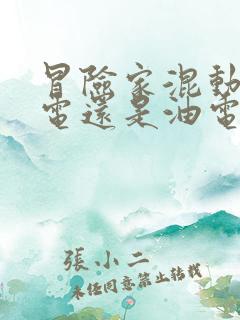 冒險家混動
電還是油電
張小二
未經同意禁止轉載